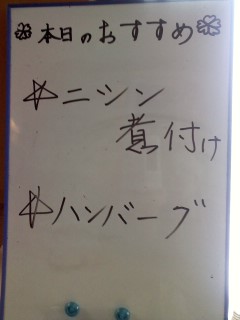 本日のおすすめ
☆ニシン
煮付け
☆ハンバーブ